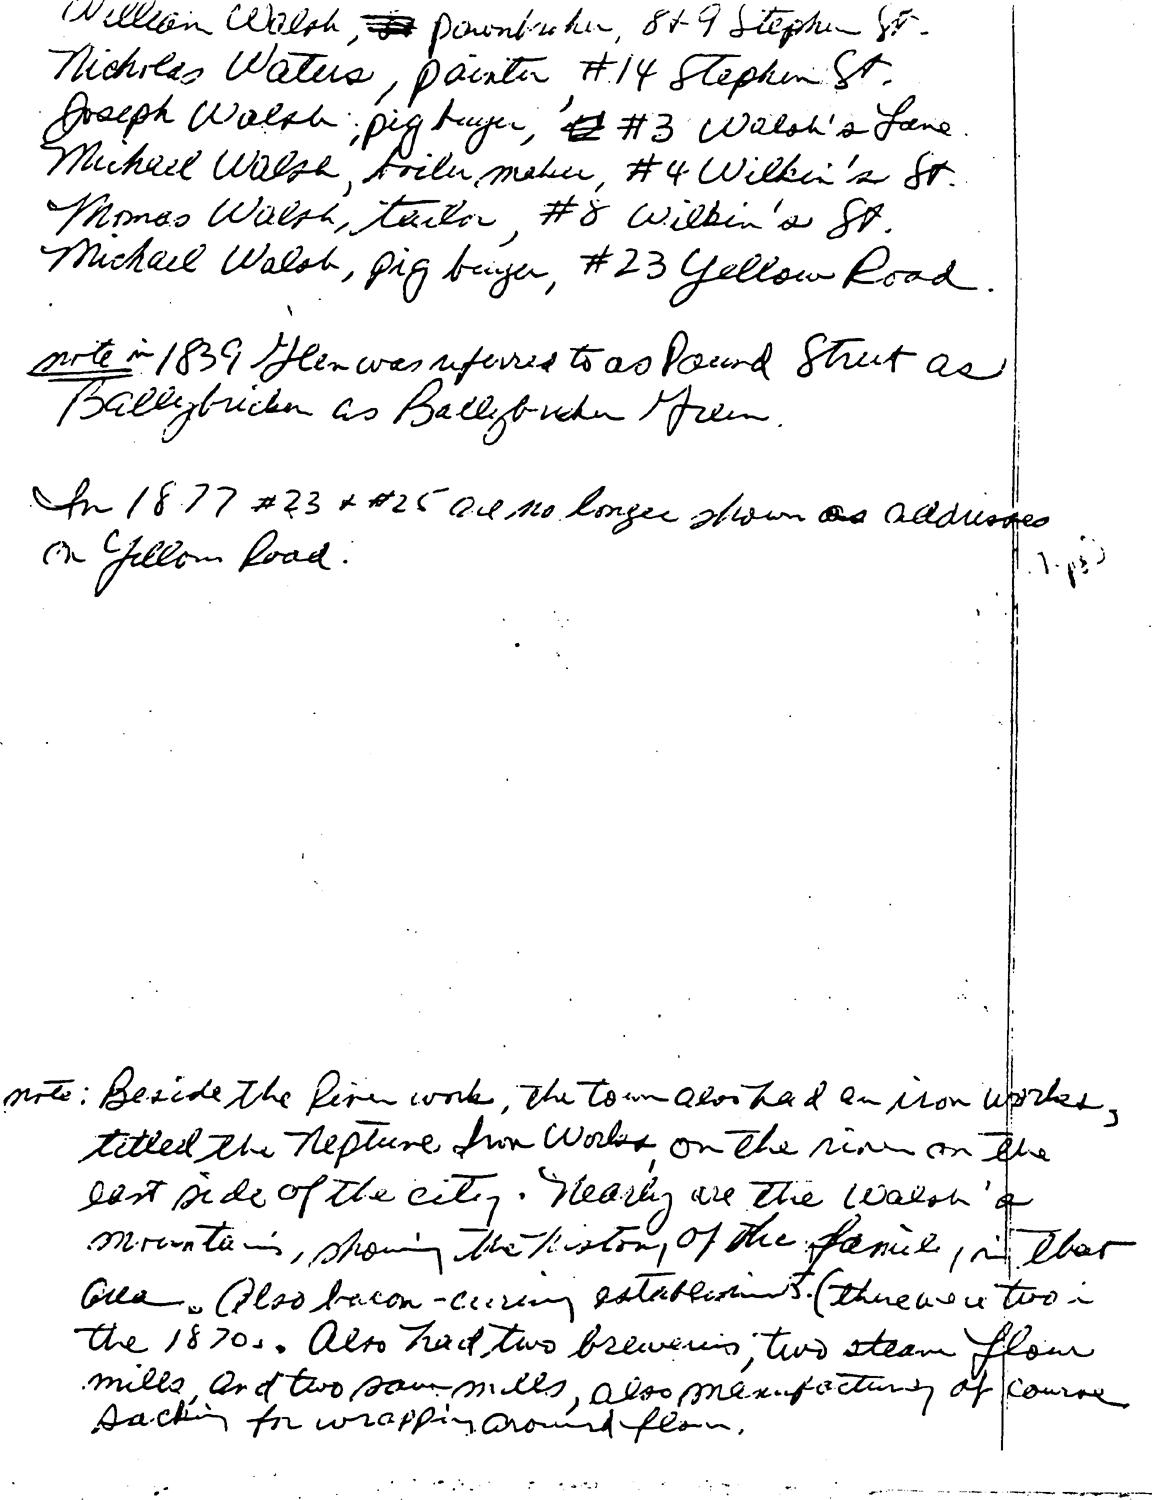 William Walsh, pawnbroker, 8+9 Stephen St.
Nicholas Waters, painter, #14 Stephen St.
Joseph Walsh, pig buyer, #3 Walsh's Lane.
Michael Walsh, boiler maker, #4 Wilkin's St.
Thomas Walsh, tailor, #8 Wilkin's St.
Michael Walsh, pig buyer, #23 Yellow Road.
note in 1839 Glen was referred to as Pound Street as
Ballybricken as Ballybricken Green.
In 1877 #23 + #25 are no longer shown as addresses
on Yellow Road.
note: Beside the River work, the town also had an iron works,
titled the Neptune Iron Works, on the river on the
east side of the city. Nearby are the Walsh's
mountains, showing the history of the family in that
area. Also bacon-curing establishments. (there were two in
the 1870s. Also had two breweries, two steam flour
mills, and two saw-mills, also manufacturing of course
sacking for wrapping around flour.